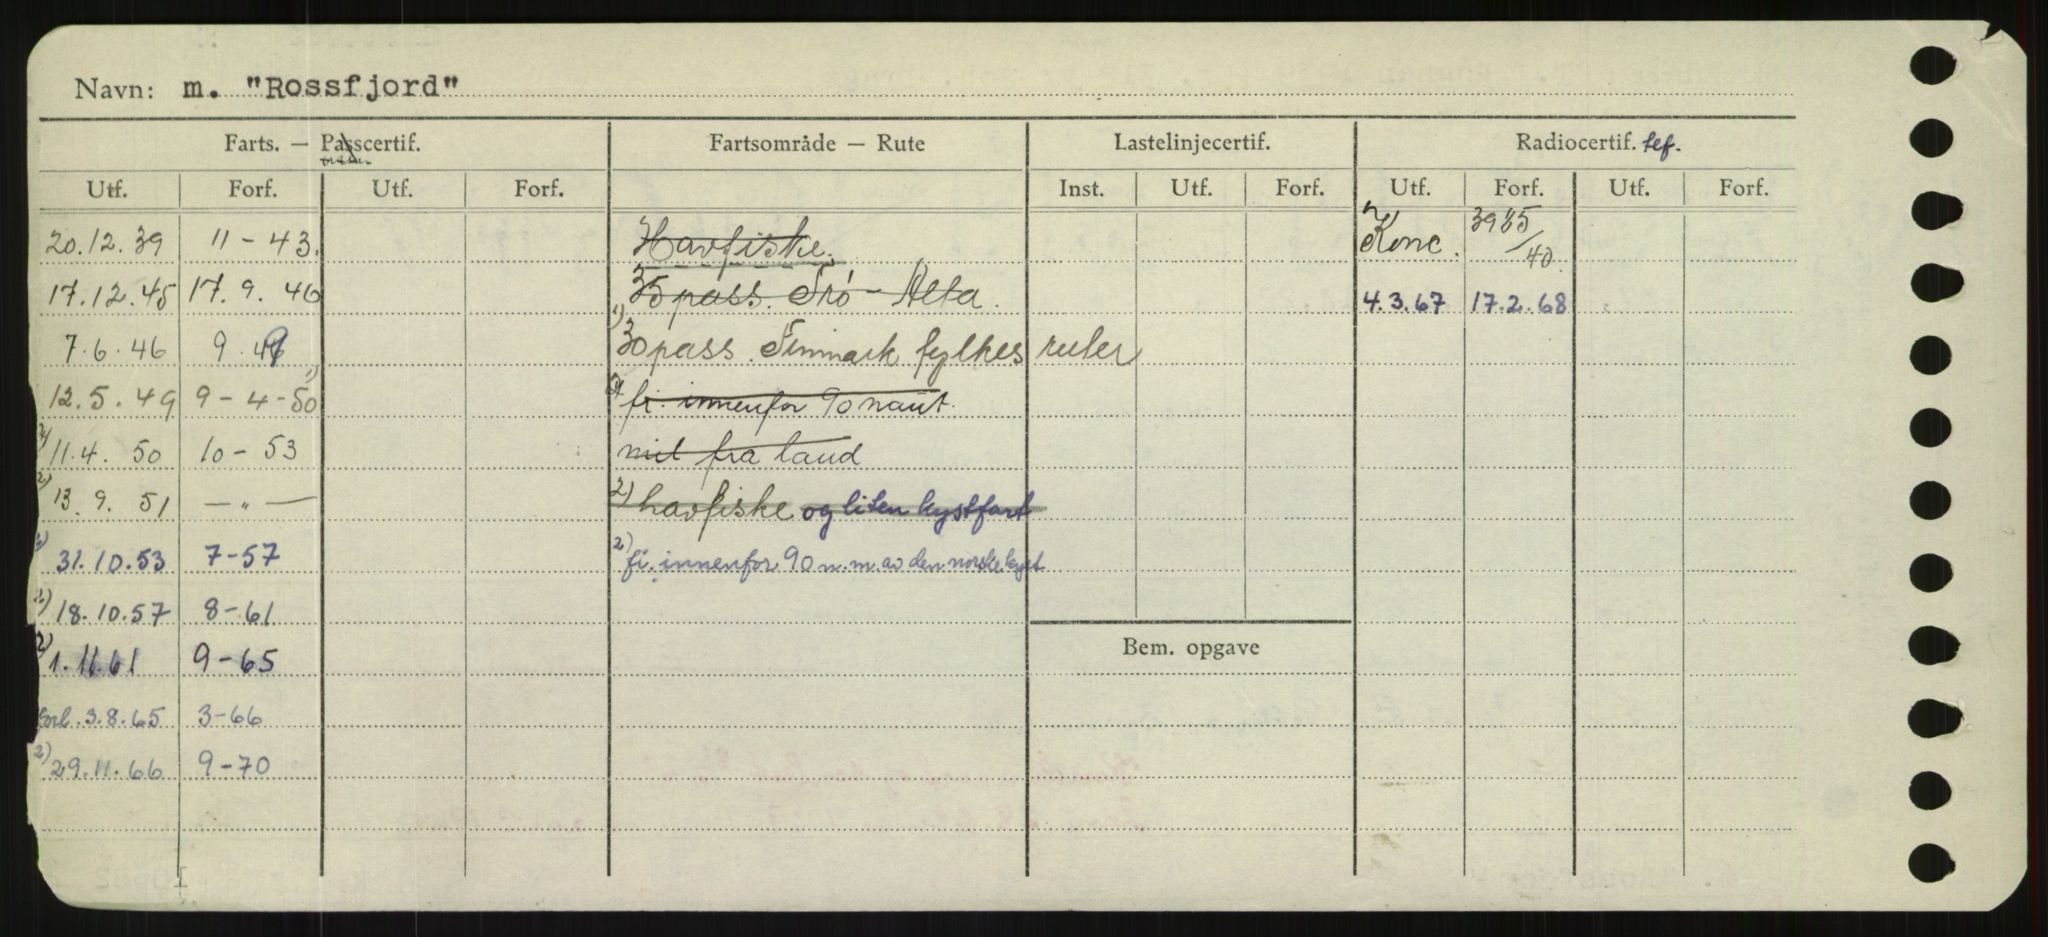 Navn: m. "Rossfjord"
Farts. — Passcertif. Fartsområde — Rute Lastelinjecertif. Radiocertif. tef.
Utf. Forf. Utf. Forf. Inst. Utf. Forf. Utf. Forf. Utf. Forf.
20.12.39 11 - 43. Havfiske. Konc. 3985/40
17.12.45 17.9.46 35 pass. Trö - Alta. 4.3.67 17.2.68
7.6.46 9.49 1) 30 pass. Finmark fylkes ruter
12.5.49 9-4-50 1) 2) fi. innenfor 90 naut.
2) 11.4.50 10-53 mil fra land
2) 13.9.51 — " — 2) havfiske og liten kystfart
2) 31.10.53 7-57 2) fi. innenfor 90 n.m. av den norske kyst
2) 18.10.57 8-61
2) 1.11.61 9-65 Bem. opgave
forl. 3.8.65 3-66
2) 29.11.66 9-70